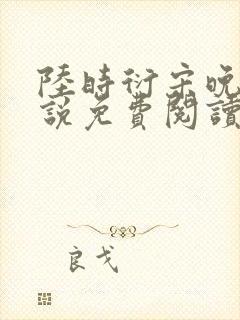 陸時衍宋晚
說免費閱讀
良戈